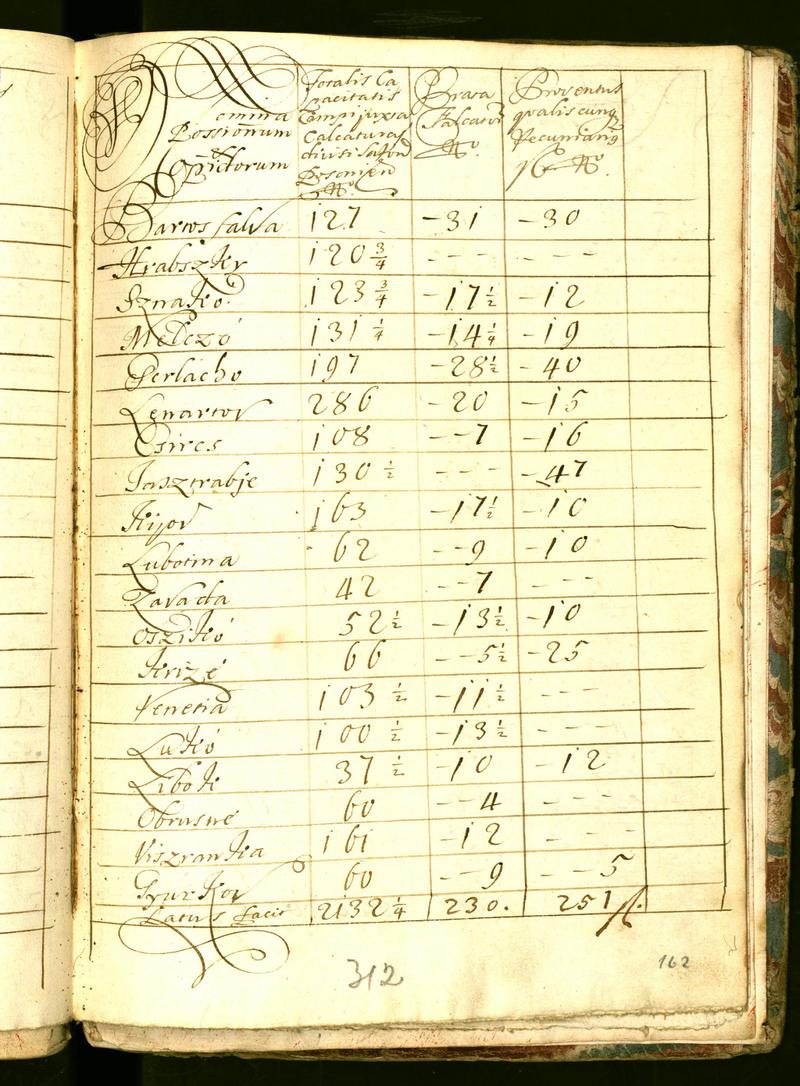 Nomina
Possionum
et
Oppidorum
Totalis Ca
pacitatis
Campi juxta
Calcaturas
divisi in
Posonien
No.
Prata
Falcator
No.
Proventus
qualiscunq
Pecuniariq
No.
Bartosfalva 127 -31 -30
Hrabszke 120 3/4 - - - - - - -
Sznakó 123 3/4 -17 1/2 -12
Melczó 131 1/4 -14 1/4 -19
Gerlacho 197 -28 1/2 -40
Lenartov 286 -20 -15
Csircs 108 --7 -16
Jasztrabje 130 1/2 - - - -47
Kijov 163 -17 1/2 -10
Lubotina 62 --9 -10
Zavada 42 --7 - - -
Oszikó 52 1/2 -13 1/2 -10
Krizé 66 --5 1/2 -25
Venetia 103 1/2 -11 1/2 - - -
Lukó 100 1/2 -13 1/2 - - -
Libok 37 1/2 -10 -12
Obrusne 60 --4 - - -
Viszranka 161 -12 - - -
Gyurkov 60 --9 - - 5
Latus facit 2132 1/4 230. 251
312
162